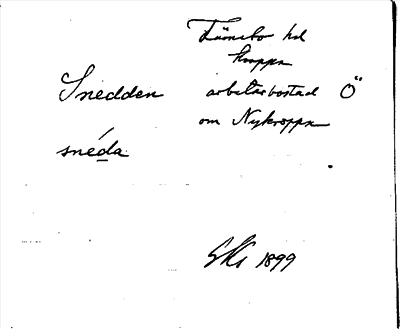 Färnebo hd
Kroppa
Snedden arbetarbostad Ö
om Nykroppa
snéda
1899